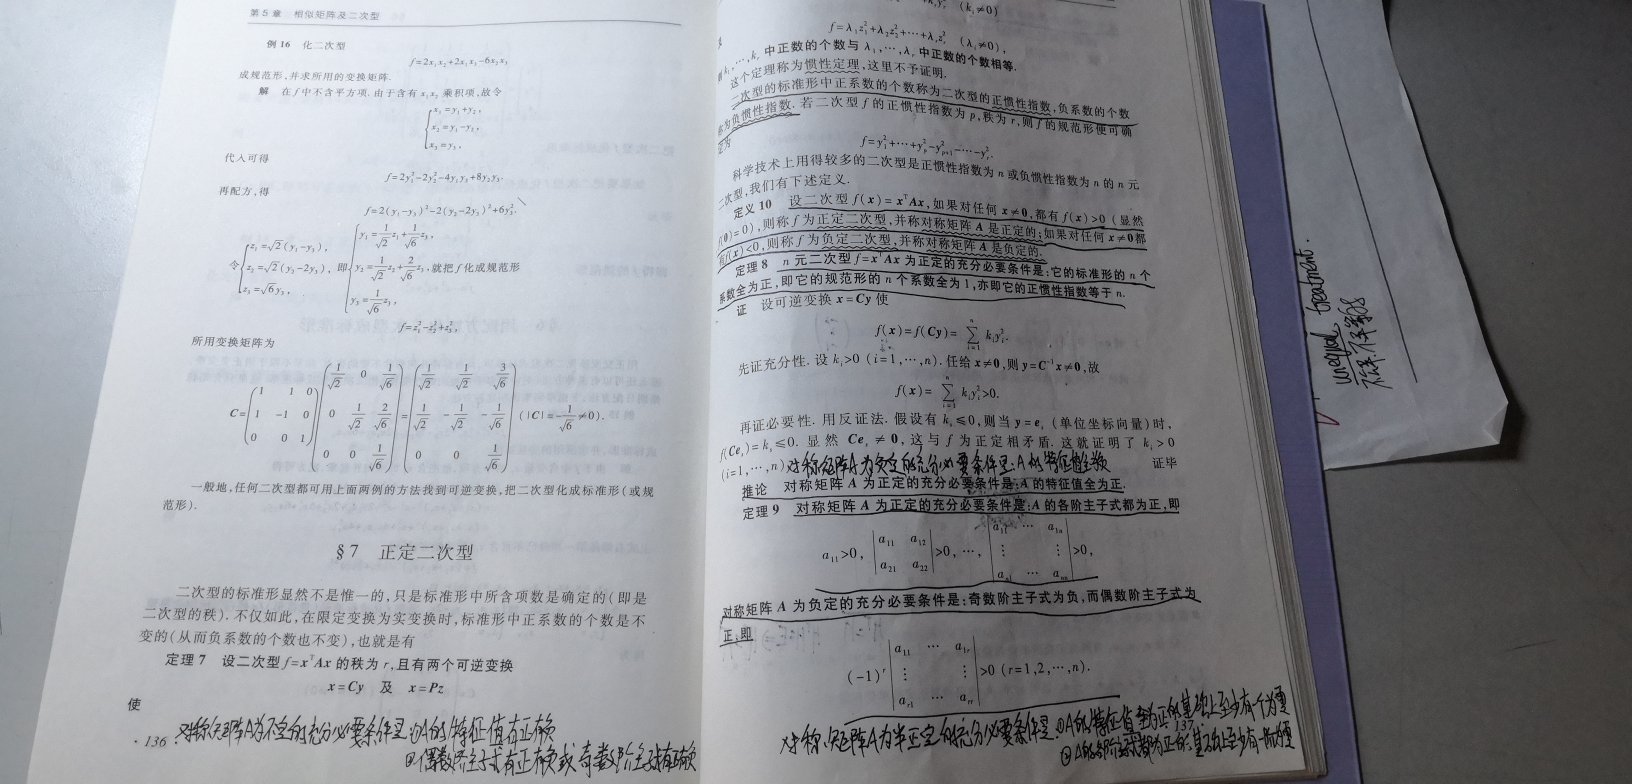 第5章 相似矩阵及二次型
例16 化二次型
f=2x₁x₂+2x₁x₃-6x₂x₃
成规范形,并求所用的变换矩阵.
解 在f中不含平方项.由于含有x₁x₂乘积项,故令
x₁=y₁+y₂,
x₂=y₁-y₂,
x₃=y₃,
代入可得
f=2y₁²-2y₂²-4y₁y₃+8y₂y₃.
再配方,得
f=2(y₁-y₃)²-2(y₂-2y₃)²+6y₃².
令 z₁=√2(y₁-y₃), z₂=√2(y₂-2y₃), z₃=√6y₃, 即 y₁=1/√2 z₁+1/√6 z₃, y₂=1/√2 z₂+2/√6 z₃, y₃=1/√6 z₃, 就把f化成规范形
f=z₁²-z₂²+z₃²,
所用变换矩阵为
C= (1 1 0; 1 -1 0; 0 0 1) (1/√2 0 1/√6; 0 1/√2 2/√6; 0 0 1/√6) = (1/√2 1/√2 3/√6; 1/√2 -1/√2 -1/√6; 0 0 1/√6) (|C|=-1/√6≠0).
一般地,任何二次型都可用上面两例的方法找到可逆变换,把二次型化成标准形(或规
范形).
§7 正定二次型
二次型的标准形显然不是惟一的,只是标准形中所含项数是确定的(即是
二次型的秩).不仅如此,在限定变换为实变换时,标准形中正系数的个数是不
变的(从而负系数的个数也不变),也就是有
定理7 设二次型f=xᵀAx的秩为r,且有两个可逆变换
x=Cy 及 x=Pz
使
·136·
对称矩阵A为不定的充分必要条件是:①A的特征值有正有负
②偶数阶主子式有正有负或奇数阶主子式有正有负
(kᵢ≠0)
f=λ₁z₁²+λ₂z₂²+⋯+λᵣzᵣ² (λᵢ≠0),
k₁,⋯,kᵣ中正数的个数与λ₁,⋯,λᵣ中正数的个数相等.
这个定理称为惯性定理,这里不予证明.
二次型的标准形中正系数的个数称为二次型的正惯性指数,负系数的个数
称为负惯性指数.若二次型f的正惯性指数为p,秩为r,则f的规范形便可确
定为
f=y₁²+⋯+yₚ²-yₚ₊₁²-⋯-yᵣ².
科学技术上用得较多的二次型是正惯性指数为n或负惯性指数为n的n元
二次型,我们有下述定义.
定义10 设二次型f(x)=xᵀAx,如果对任何x≠0,都有f(x)>0(显然
f(0)=0),则称f为正定二次型,并称对称矩阵A是正定的;如果对任何x≠0都
有f(x)<0,则称f为负定二次型,并称对称矩阵A是负定的.
定理8 n元二次型f=xᵀAx为正定的充分必要条件是:它的标准形的n个
系数全为正,即它的规范形的n个系数全为1,亦即它的正惯性指数等于n.
证 设可逆变换x=Cy使
f(x)=f(Cy)=∑ᵢ₌₁ⁿ kᵢyᵢ².
先证充分性.设kᵢ>0(i=1,⋯,n).任给x≠0,则y=C⁻¹x≠0,故
f(x)=∑ᵢ₌₁ⁿ kᵢyᵢ²>0.
再证必要性.用反证法.假设有kₛ≤0,则当y=eₛ(单位坐标向量)时,
f(Ceₛ)=kₛ≤0.显然Ceₛ≠0,这与f为正定相矛盾.这就证明了kᵢ>0
(i=1,⋯,n). 证毕
对称矩阵A为负定的充分必要条件是:A的特征值全为负
推论 对称矩阵A为正定的充分必要条件是:A的特征值全为正.
定理9 对称矩阵A为正定的充分必要条件是:A的各阶主子式都为正,即
a₁₁>0, |a₁₁ a₁₂; a₂₁ a₂₂|>0, ⋯, |a₁₁ ⋯ a₁ₙ; ⋮ ⋮; aₙ₁ ⋯ aₙₙ|>0,
对称矩阵A为负定的充分必要条件是:奇数阶主子式为负,而偶数阶主子式为
正,即
(-1)ʳ |a₁₁ ⋯ a₁ᵣ; ⋮ ⋮; aᵣ₁ ⋯ aᵣᵣ|>0 (r=1,2,⋯,n).
对称矩阵A为半正定的充分必要条件是:①A的特征值全为正的基础上至少有一个为零
137·
②A的各阶主子式都为正的基础上至少有一阶为零
unequal treatment.